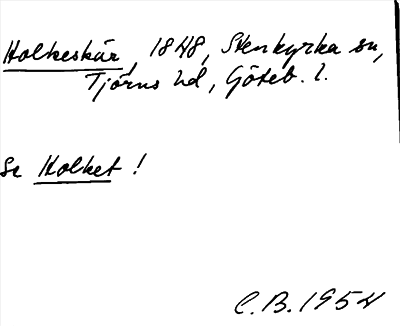 Holkeskär, 1848, Stenkyrka sn,
Tjörns hd, Göteb. l.
Se Holket!
C.B. 1954